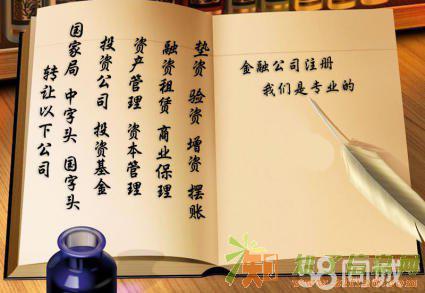 转让以下公司
国家局 中字头 国字头
投资公司 投资基金
资产管理 资本管理
融资租赁 商业保理
垫资 验资 增资 摆账
金融公司注册
我们是专业的
58同城